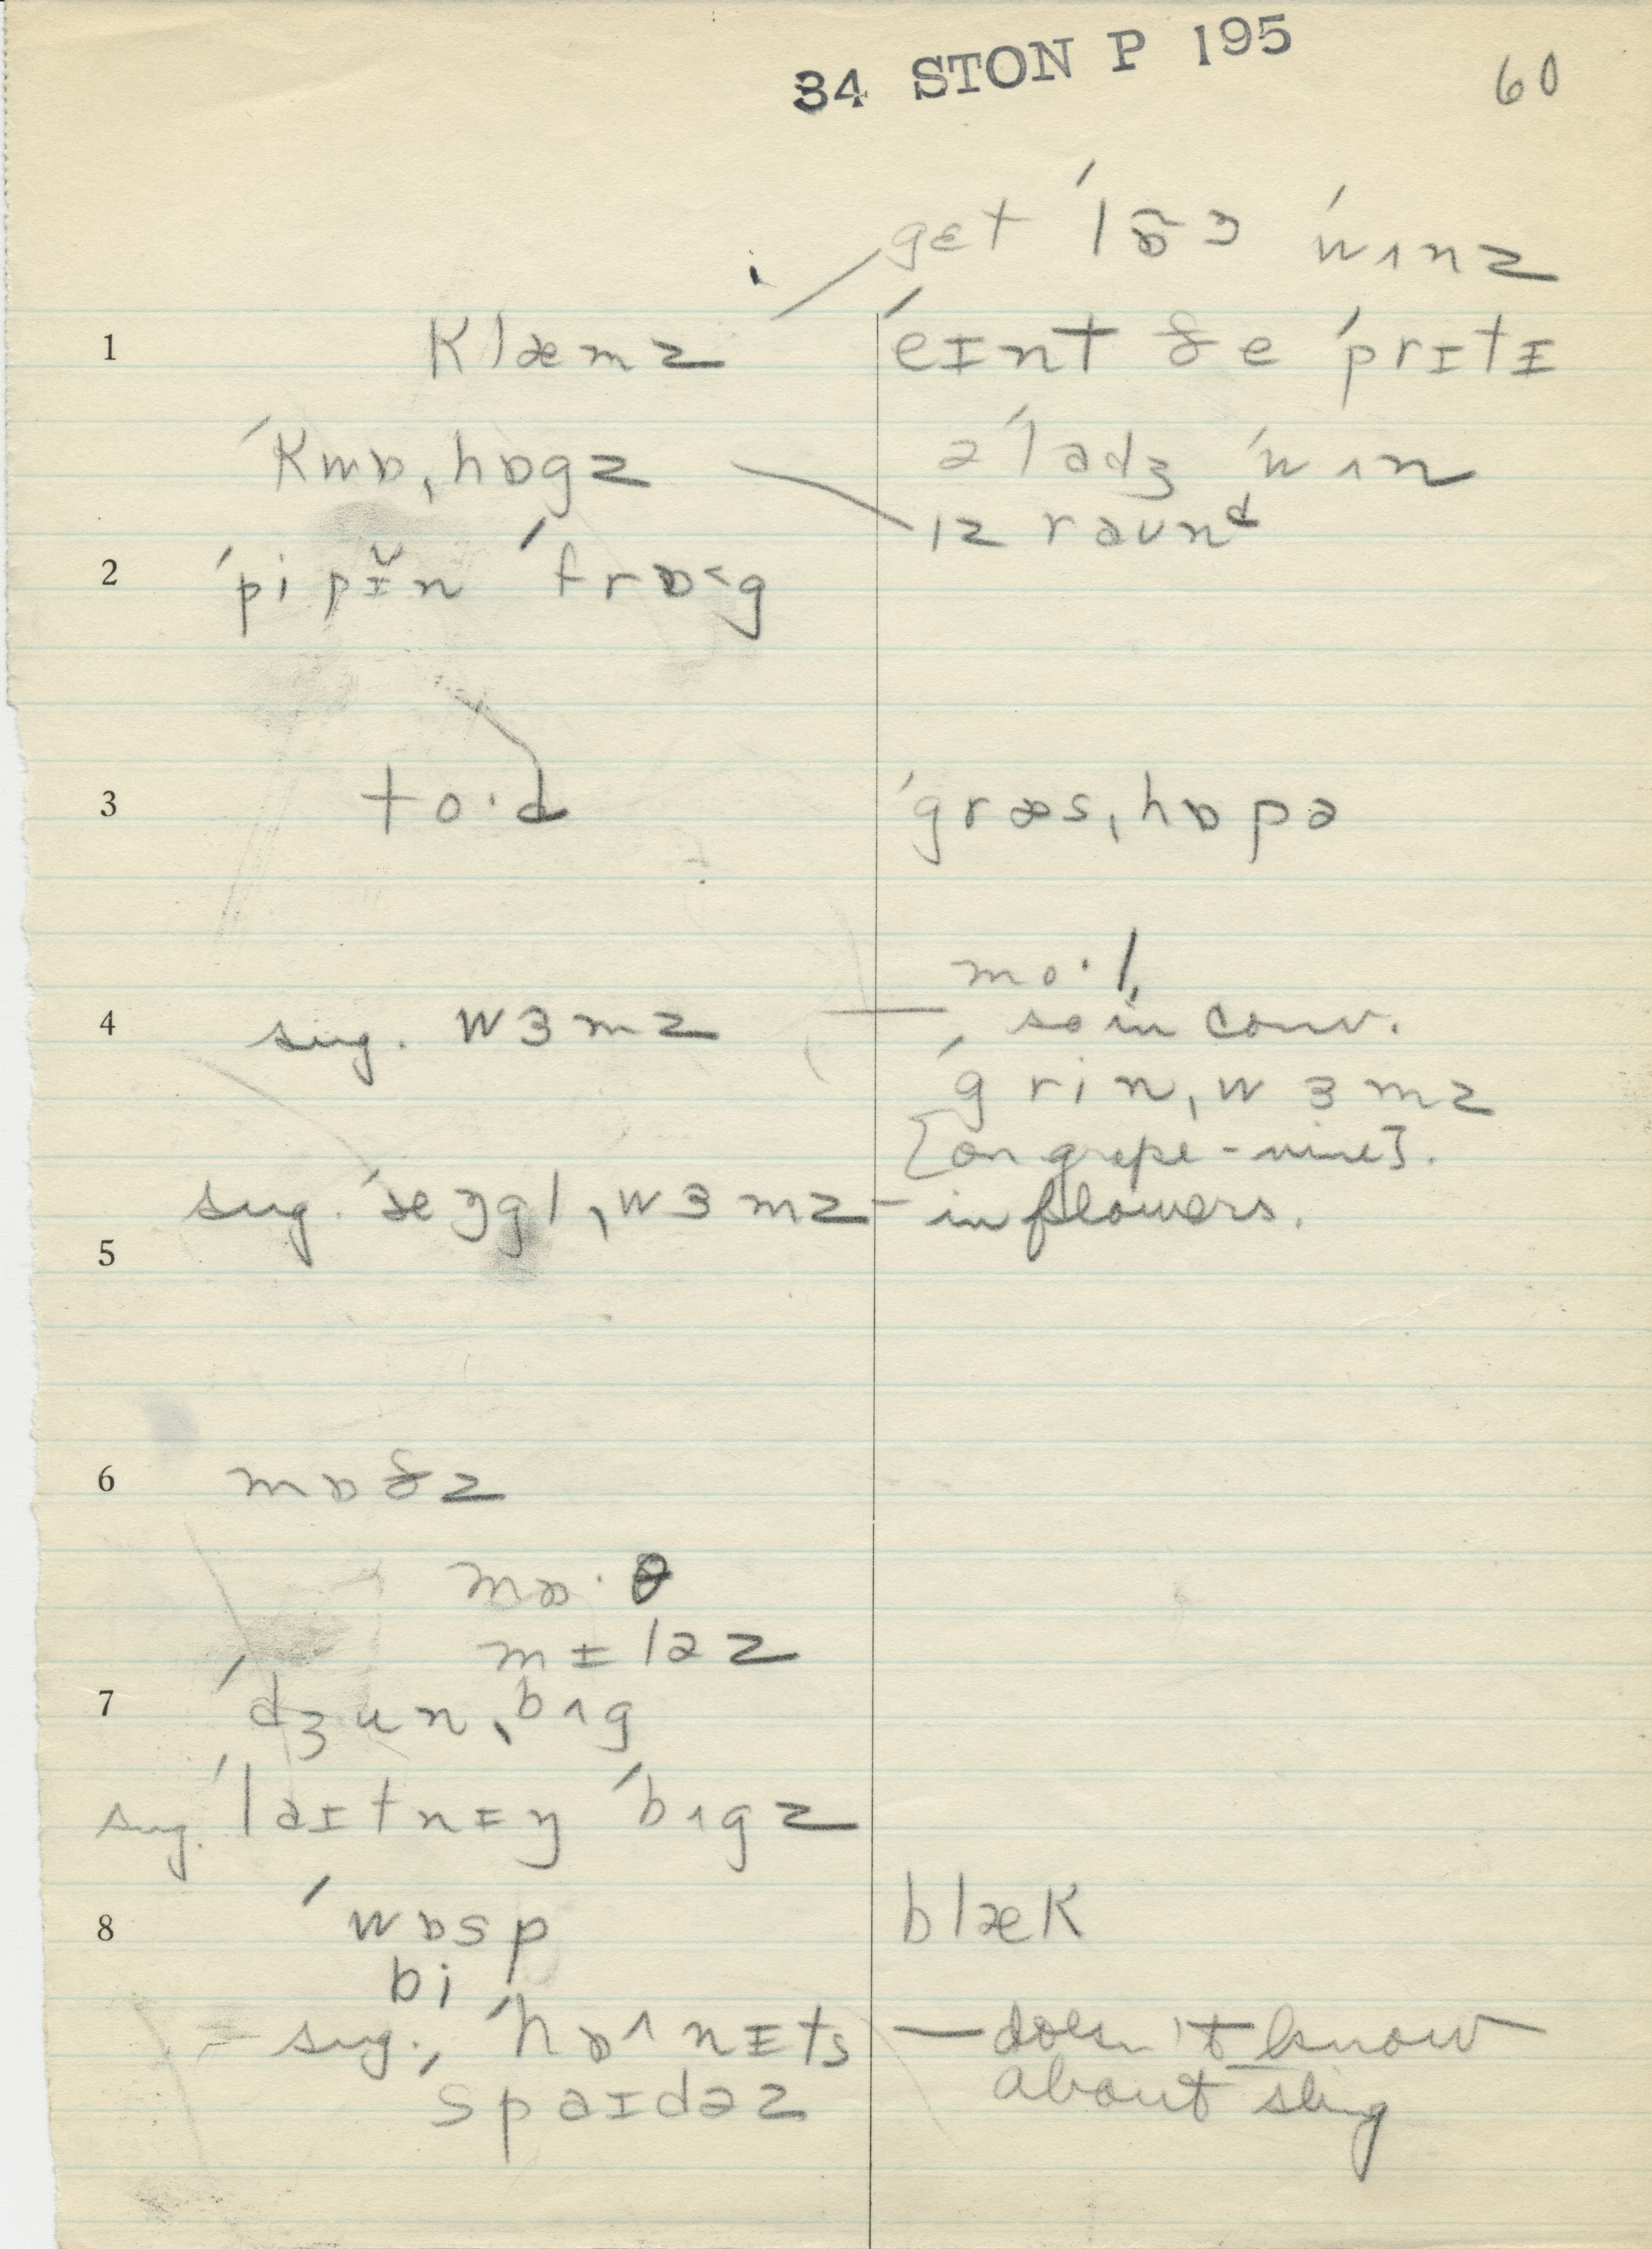 34 STON P 195
60
gɛt ˈlɒ̃ŋ ˈwʌnz
1 klæmz
ˈeɪnt ðe ˈprɪtɪ
ˈkwɒˌhɒgz
əˈladʒ ˈwʌn
ɪz raʊnᵈ
2 ˈpipɪ̆n ˈfrɒ˂g
3 to·d
ˈgræsˌhɒpə
mo·l,
4 sug. wɜmz
so in conv.
ˈgrinˌwɜmz
[on grape-vine].
sug. ˈæŋglˌwɜmz – in flowers.
5
6 mɒðz
mɒ·θ
mɪləz
7 ˈdʒunˌbʌg
sug. ˈlaɪtnɪŋ ˈbʌgz
8 ˈwɒsp
blæk
bi
sug., ˈhɒ˄nɪts — doesn't know
ˈspaɪdəz
about sting